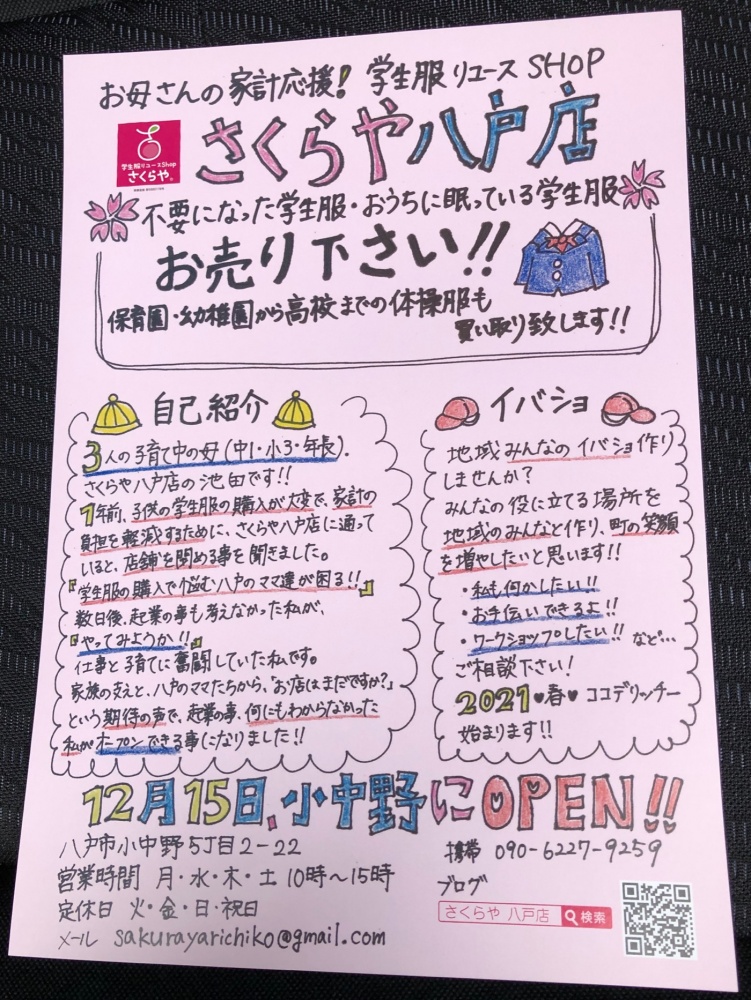 お母さんの家計応援！学生服リユースSHOP
学生服リユースShop
さくらや
さくらや八戸店
不要になった学生服・おうちに眠っている学生服
お売り下さい!!
保育園・幼稚園から高校までの体操服も
買い取り致します!!
自己紹介
3人の子育て中の母(中1・小3・年長).
さくらや八戸店の池田です!!
1年前、子供の学生服の購入が大変で、家計の
負担を軽減するために、さくらや八戸店に通って
いると、店舗を閉める事を聞きました。
『学生服の購入で悩む八戸のママ達が困る!!』
数日後、起業の事も考えなかった私が、
『やってみようか!!』
仕事と子育てに奮闘していた私です。
家族の支えと、八戸のママたちから、"お店はまだですか?"
という期待の声で、起業の事、何にもわからなかった
私がオープンできる事になりました!!
イバショ
地域みんなのイバショ作り
しませんか?
みんなの役に立てる場所を
地域のみんなと作り、町の笑顔
を増やしたいと思います!!
・私も何かしたい!!
・お手伝いできるよ!!
・ワークショップしたい!! など…
ご相談下さい!
2021♥春♥ココデリッチー
始まります!!
12月15日、小中野にOPEN!!
八戸市小中野5丁目2-22
営業時間 月・水・木・土 10時～15時
定休日 火・金・日・祝日
メール sakurayarichiko@gmail.com
携帯 090-6227-9259
ブログ
さくらや 八戸店 検索